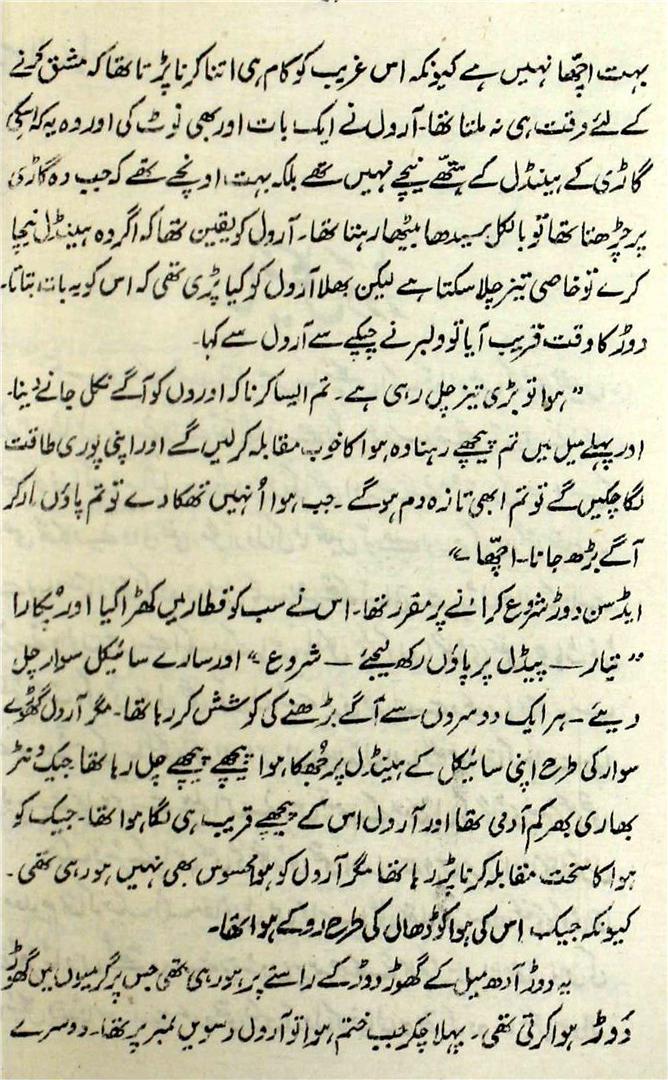 بہت اچھّا نہیں ہے کیونکہ اس غریب کو کام ہی اتنا کرنا پڑتا تھا کہ مشق کرنے
کے لئے وقت ہی نہ ملتا تھا۔ آرول نے ایک بات اور بھی نوٹ کی اور وہ یہ کہ اسکی
گاڑی کے ہینڈل کے ہتھّے نیچے نہیں تھے بلکہ بہت اونچے تھے کہ جب وہ گاڑی
پر چڑھتا تھا تو بالکل سیدھا بیٹھا رہتا تھا۔ آرول کو یقین تھا کہ اگر وہ ہینڈل نیچا
کرے تو خاصی تیز چلا سکتا ہے لیکن بھلا آرول کو کیا پڑی تھی کہ اس کو یہ بات بتاتا۔
دوڑ کا وقت قریب آیا تو ولبر نے چپکے سے آرول سے کہا۔
”ہوا تو بڑی تیز چل رہی ہے۔ تم ایسا کرنا کہ اوروں کو آگے نکل جانے دینا۔
اور پہلے میل میں تم پیچھے رہنا وہ ہوا کا خوب مقابلہ کرلیں گے اور اپنی پوری طاقت
لگا چکیں گے تو تم ابھی تازہ دم ہوگے۔ جب ہوا اُنہیں تھکا دے تو تم پاؤں مارکر
آگے بڑھ جانا۔ اچھّا“
ایڈسن دوڑ شروع کرانے پر مقرر تھا۔ اس نے سب کو قطار میں کھڑا کیا اور پُکارا
”تیار — پیڈل پر پاؤں رکھ لیجئے — شروع“ اور سارے سائیکل سوار چل
دیئے۔ ہر ایک دوسروں سے آگے بڑھنے کی کوشش کر رہا تھا۔ مگر آرول گھوڑے
سوار کی طرح اپنی سائیکل کے ہینڈل پر جُھکا ہوا پیچھے پیچھے چل رہا تھا جیک ونٹر
بھاری بھرکم آدمی تھا اور آرول اس کے پیچھے قریب ہی لگا ہوا تھا۔ جیک کو
ہوا کا سخت مقابلہ کرنا پڑ رہا تھا مگر آرول کو ہوا محسوس بھی نہیں ہو رہی تھی۔
کیونکہ جیک اس کی ہوا کو ڈھال کی طرح روکے ہوا تھا۔
یہ دوڑ آدھ میل کے گھوڑ دوڑ کے راستے پر ہو رہی تھی جس پر گرمیوں میں گھوڑ
دَوڑ ہوا کرتی تھی۔ پہلا چکر جب ختم ہوا تو آرول دسویں نمبر پر تھا۔ دوسرے